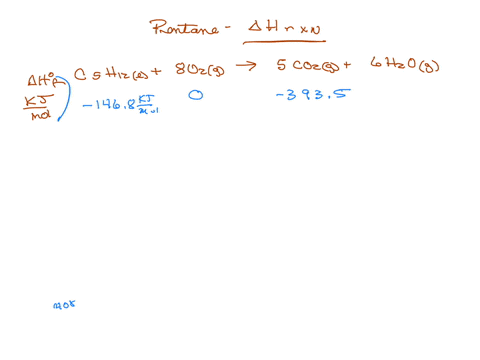 Pentane - ΔHrxn
ΔH°f C5H12(g) + 8O2(g) → 5CO2(g) + 6H2O(g)
KJ/mol -146.8 KJ/mol 0 -393.5